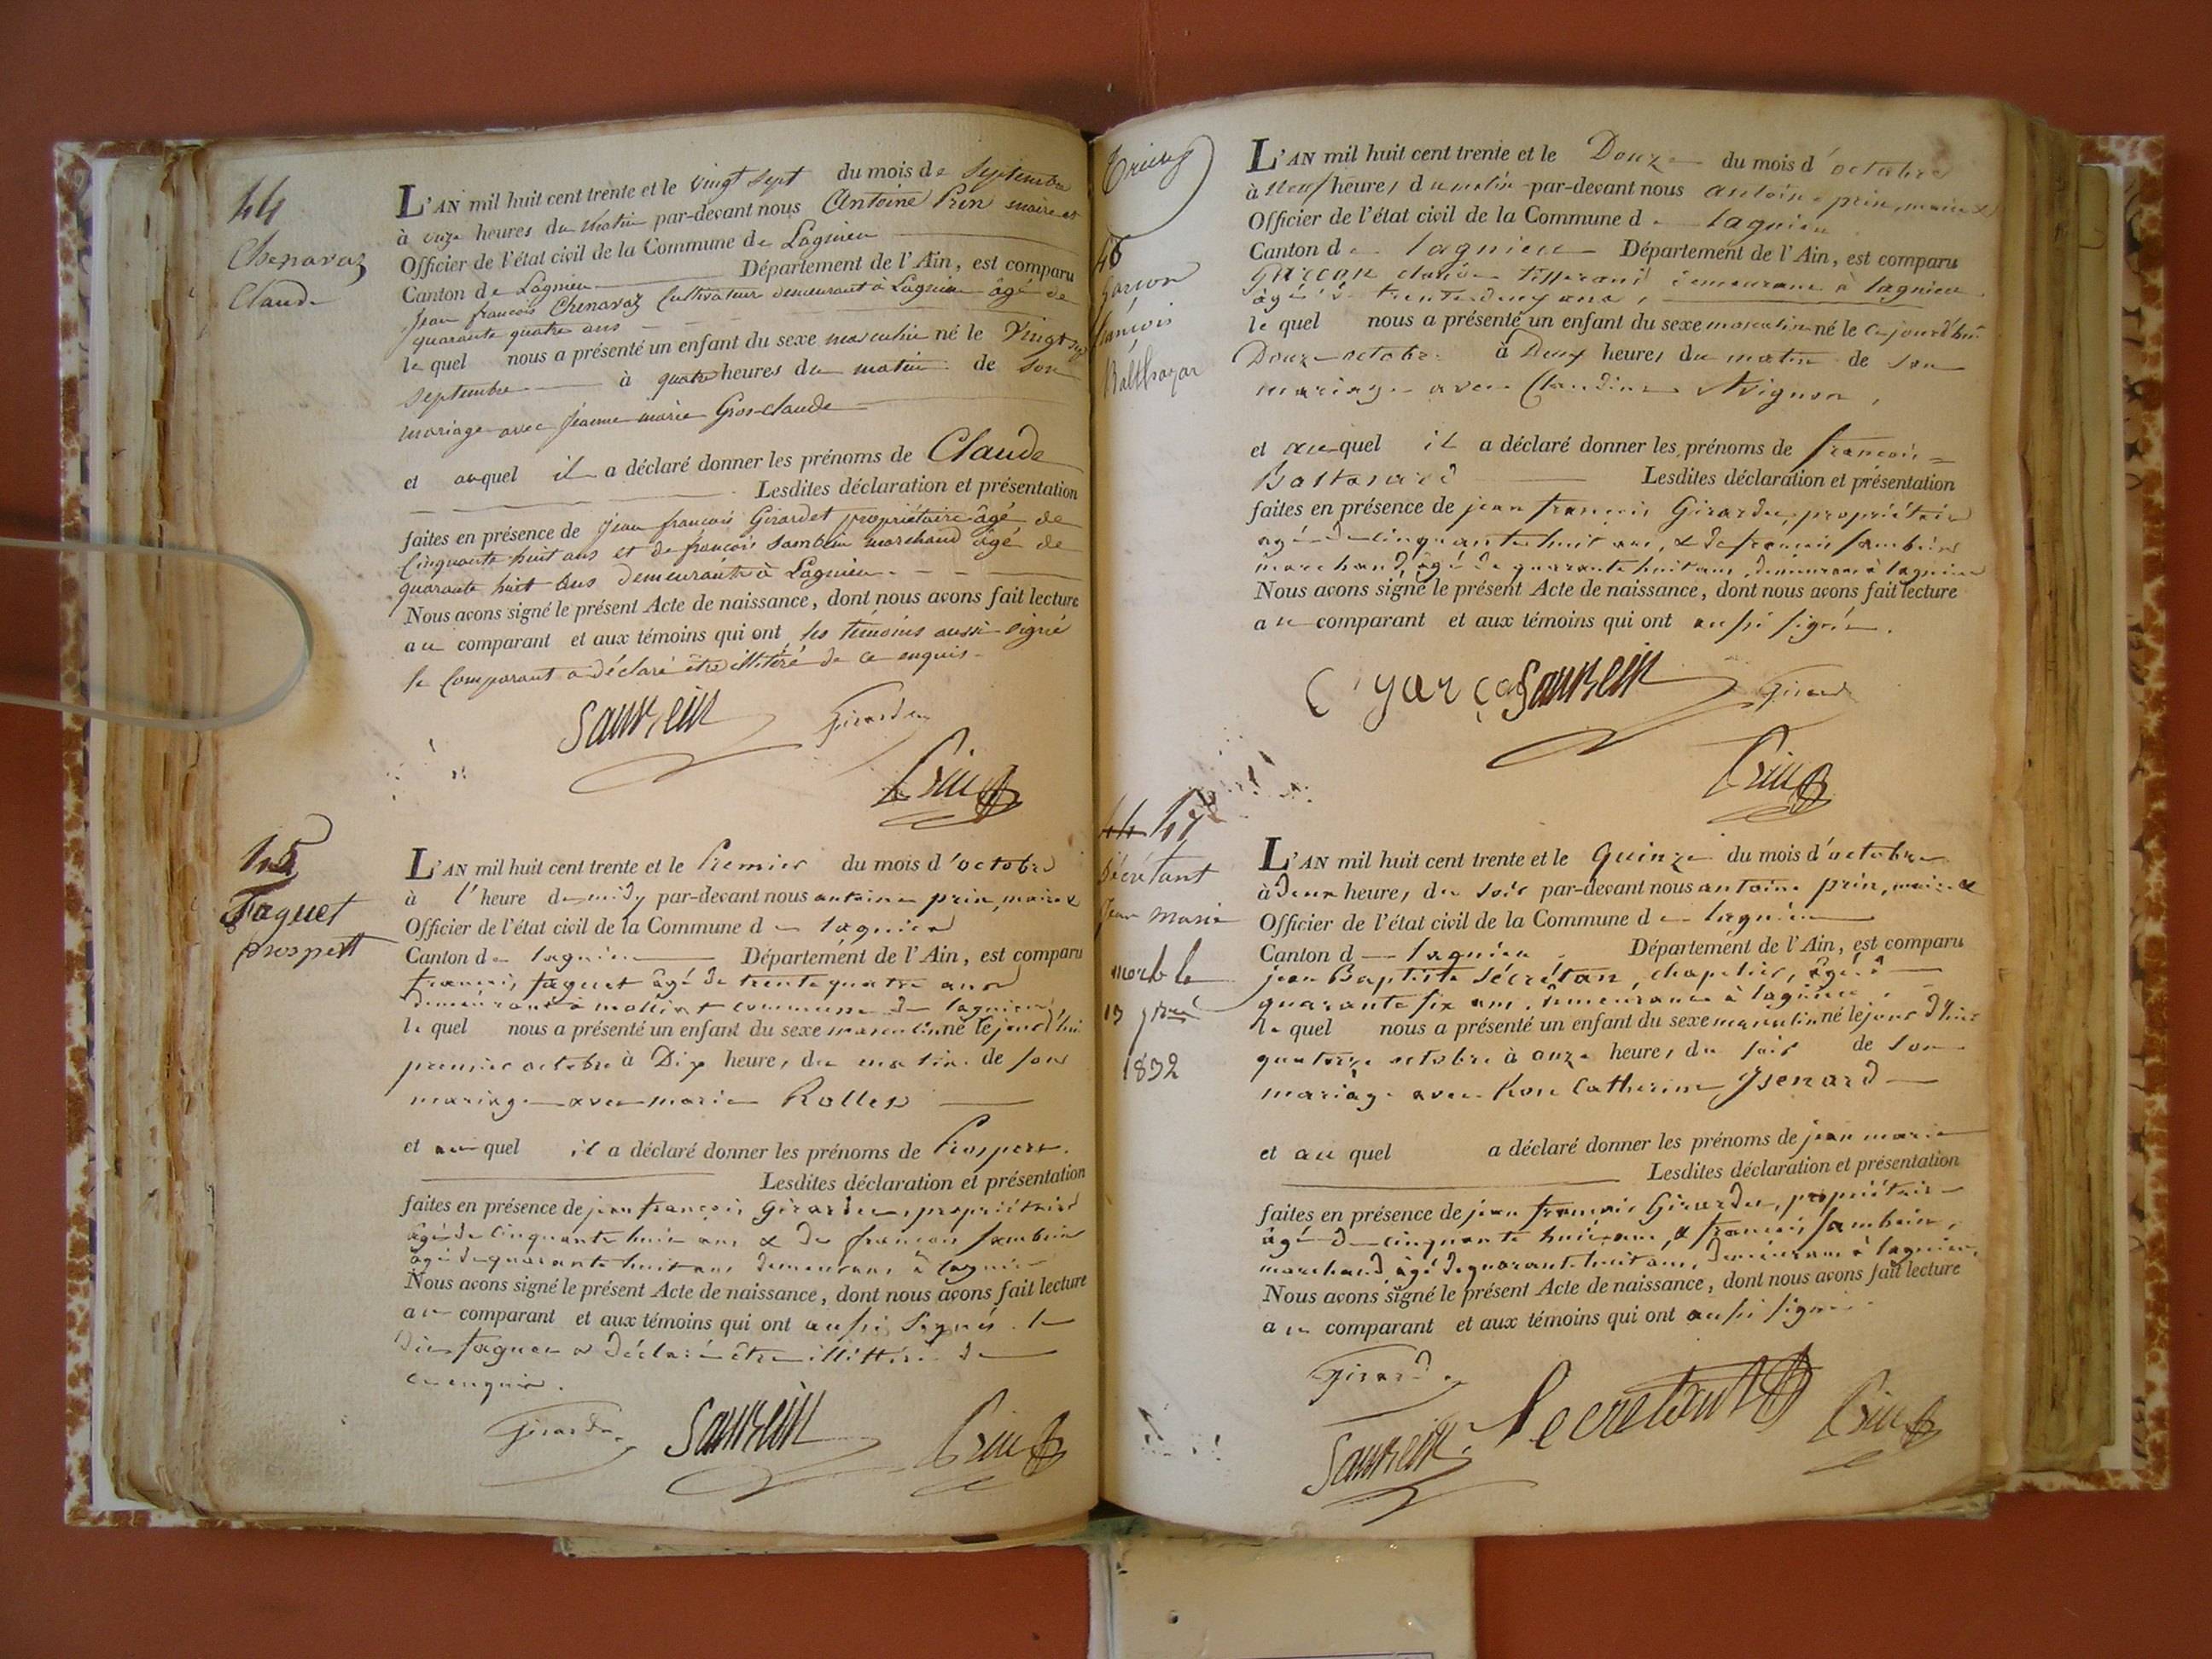 44
Chenavaz
Claude
L'AN mil huit cent trente et le vingt sept du mois de septembre
à onze heures du matin par-devant nous Antoine Prin maire et
Officier de l'état civil de la Commune de Lagnieu
Canton de Lagnieu Département de l'Ain, est comparu
Jean françois Chenavaz Cultivateur demeurant à Lagnieu âgé de
quarante quatre ans
le quel nous a présenté un enfant du sexe masculin né le Vingt sept
septembre à quatre heures du matin de son
mariage avec Jeanne marie Gros-claude
et auquel il a déclaré donner les prénoms de Claude
Lesdites déclaration et présentation
faites en présence de Jean françois Girardet propriétaire âgé de
Cinquante huit ans et de françois Sambein marchand âgé de
quarante huit ans demeurants à Lagnieu
Nous avons signé le présent Acte de naissance, dont nous avons fait lecture
au comparant et aux témoins qui ont les témoins aussi signé
le Comparant a déclaré être illitéré de ce enquis
Sambein Girardet
Prin
45
Faquet
prospert
L'AN mil huit cent trente et le Premier du mois d'octobre
à l'heure de midy par-devant nous antoine prin, maire &
Officier de l'état civil de la Commune de lagnieu
Canton de lagnieu Département de l'Ain, est comparu
françois faquet âgé de trente quatre ans
demeurant à commune de lagnieu,
le quel nous a présenté un enfant du sexe masculin né le jourd'hui
premier octobre à Dix heures du matin de son
mariage avec marie Rollet
et au quel il a déclaré donner les prénoms de Prospert.
Lesdites déclaration et présentation
faites en présence de jean françois Girardet, propriétaire
âgé de cinquante huit ans & de françois Sambein
âgé de quarante huit ans demeurans à lagnieu
Nous avons signé le présent Acte de naissance, dont nous avons fait lecture
au comparant et aux témoins qui ont aussi signés. le
dit faquet a déclaré être illittéré de
ce enquis.
Girardet Sambein Prin
46
Garson
françois
Balthazar
L'AN mil huit cent trente et le Douze du mois d'octobre
à neuf heures du matin par-devant nous antoine prin, maire &
Officier de l'état civil de la Commune de lagnieu
Canton de lagnieu Département de l'Ain, est comparu
Garçon claude tisserand demeurant à lagnieu
âgé de trente deux ans,
le quel nous a présenté un enfant du sexe masculin né le cejourd'hui
Douze octobre à Deux heures du matin de son
mariage avec Claudine Avignon,
et au quel il a déclaré donner les prénoms de françois=
Baltazard Lesdites déclaration et présentation
faites en présence de jean françois Girardet, propriétaire
âgé de cinquante huit ans, & de françois Sambein
marchand, âgé de quarante huit ans, demeurans à lagnieu
Nous avons signé le présent Acte de naissance, dont nous avons fait lecture
au comparant et aux témoins qui ont aussi signés.
Sambein Girardet
Prin
47
Sécrétant
Jean Marie
mort le
13
1832
L'AN mil huit cent trente et le Quinze du mois d'octobre
à deux heures du soir par-devant nous antoine prin, maire &
Officier de l'état civil de la Commune de lagnieu
Canton de lagnieu Département de l'Ain, est comparu
jean Baptiste Sécrétan, chapelier, âgé de
quarante six ans, demeurant à lagnieu
le quel nous a présenté un enfant du sexe masculin né le jour d'hier
quatorze octobre à onze heures du soir de son
mariage avec Rose Catherine Isenard
et au quel a déclaré donner les prénoms de jean marie
Lesdites déclaration et présentation
faites en présence de jean françois Girardet, propriétaire
âgé de cinquante huit ans, & françois Sambein,
marchand âgé de quarante huit ans, demeurans à lagnieu,
Nous avons signé le présent Acte de naissance, dont nous avons fait lecture
au comparant et aux témoins qui ont aussi signé
Girardet
Sambein Secretant Prin